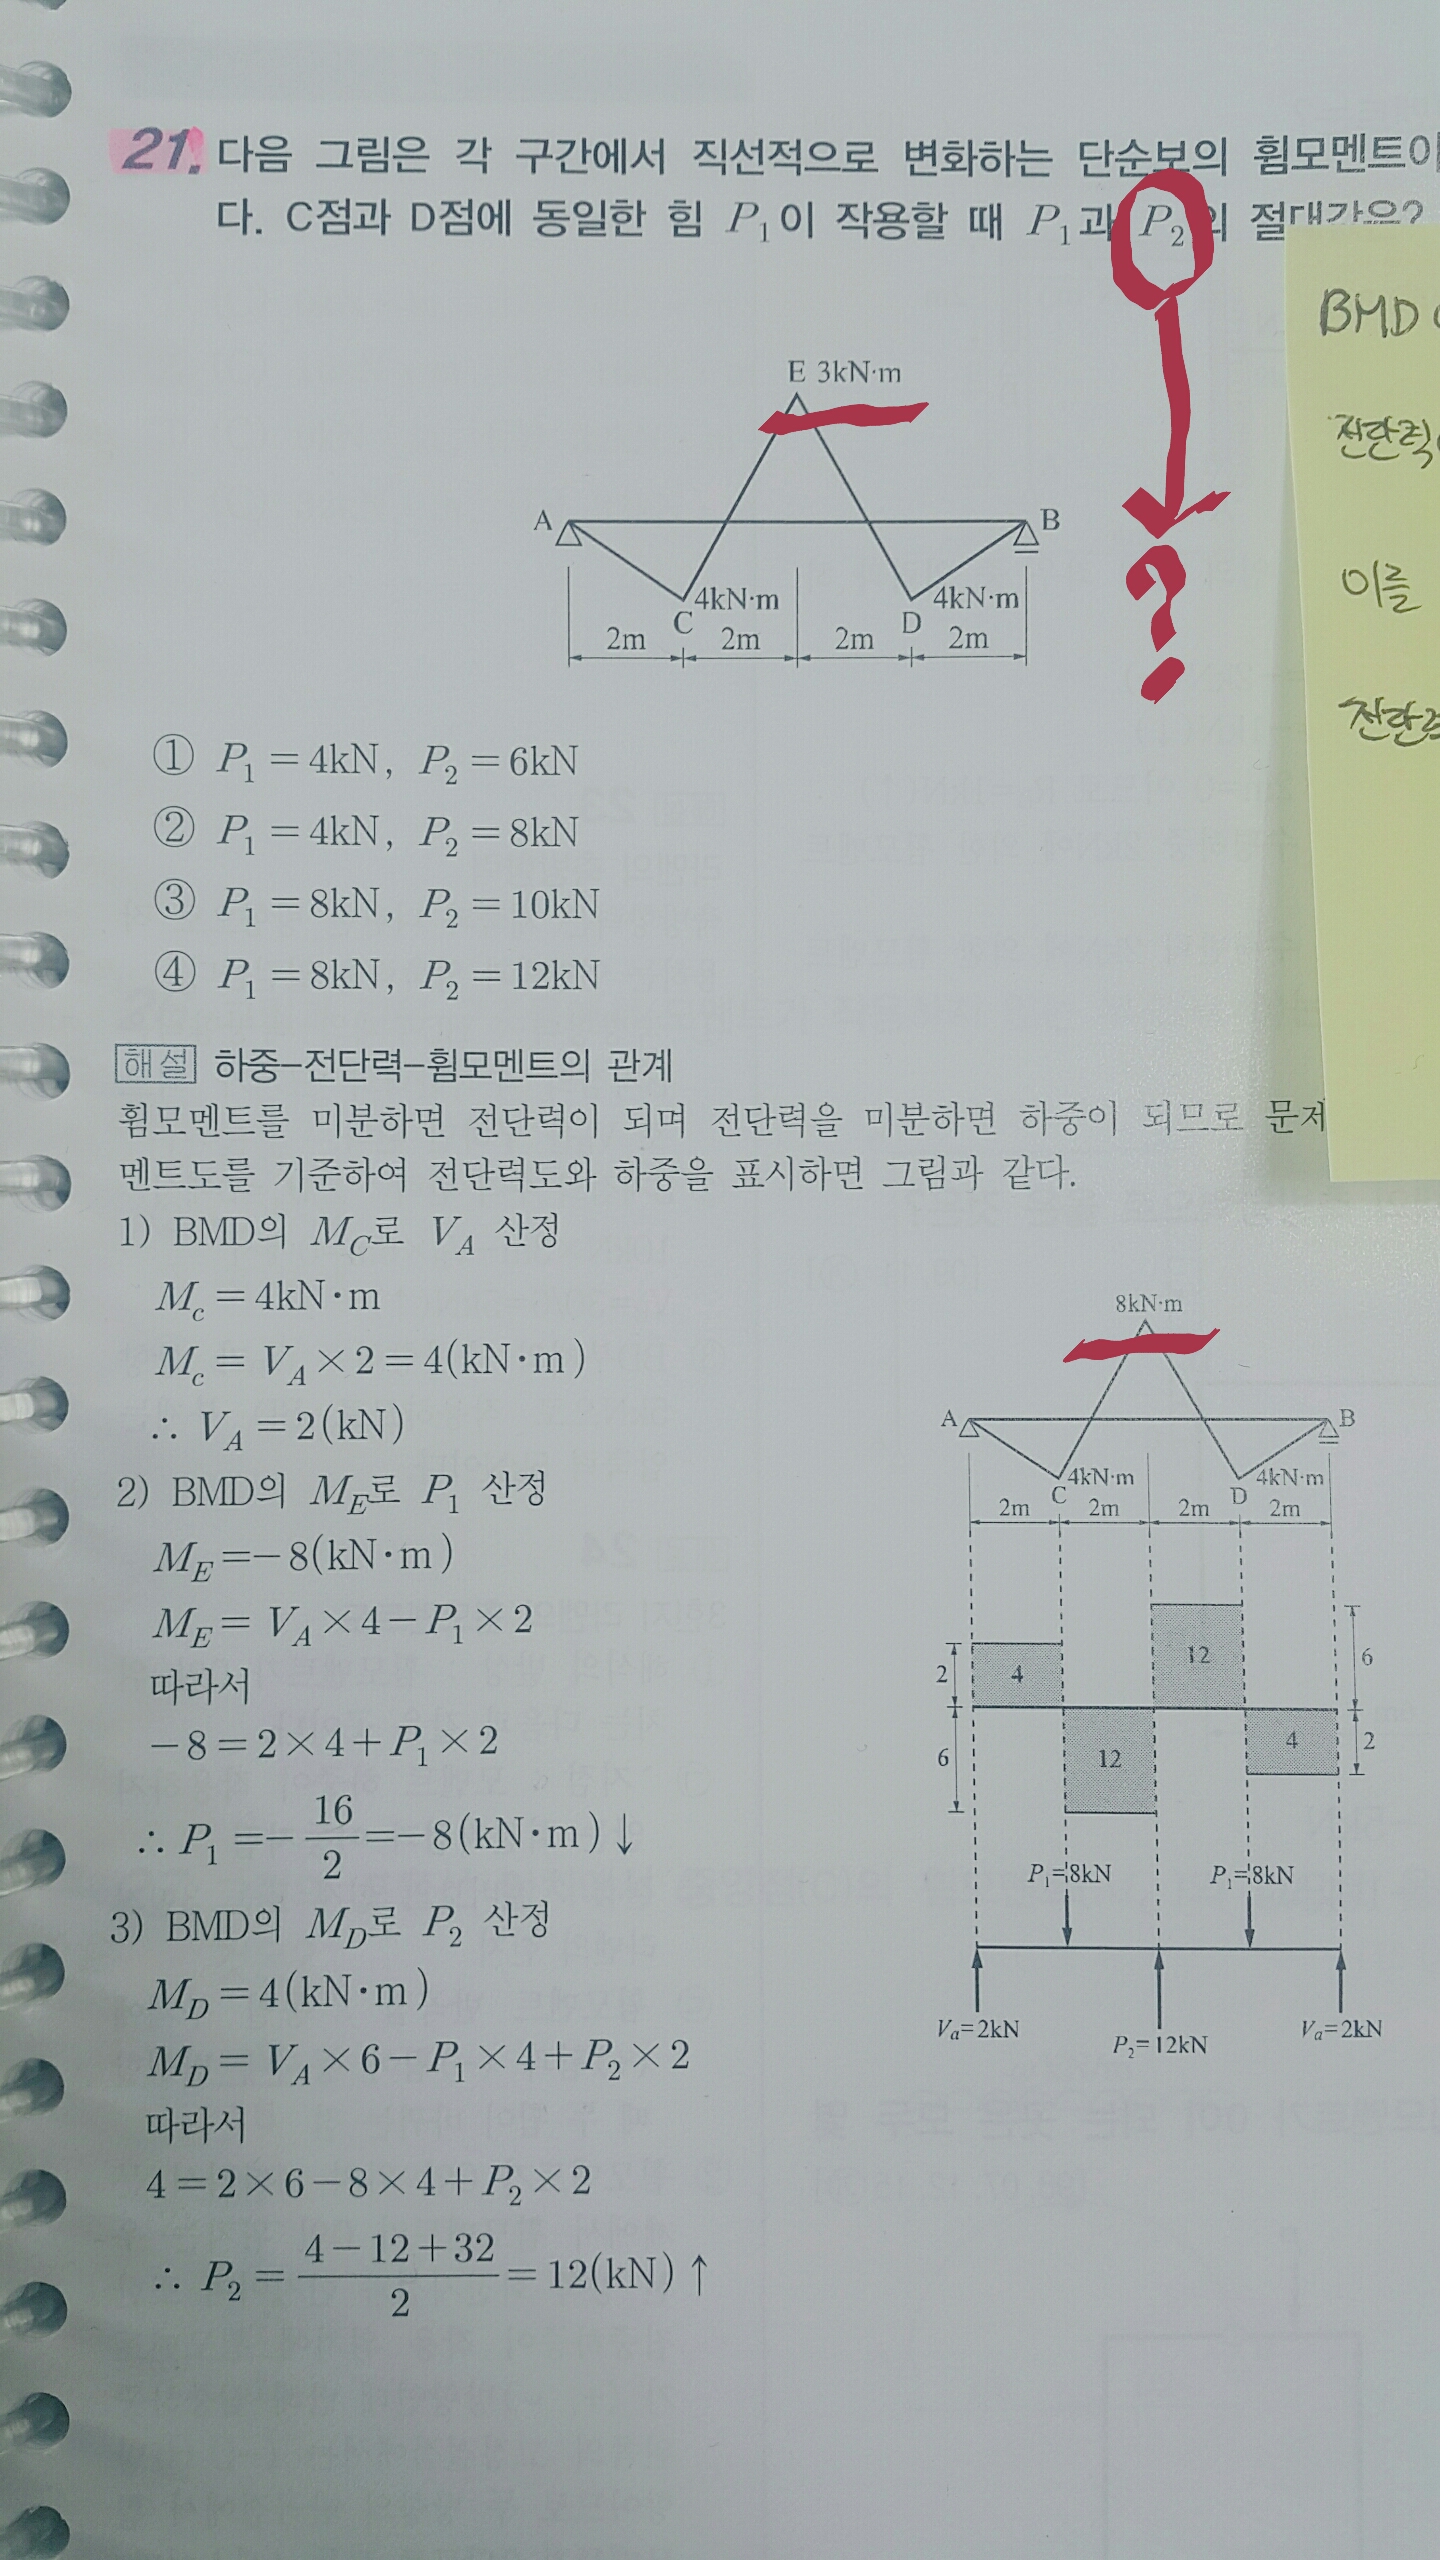 21. 다음 그림은 각 구간에서 직선적으로 변화하는 단순보의 휨모멘트이
다. C점과 D점에 동일한 힘 P₁이 작용할 때 P₁과 P₂의 절대값은?
BMD
전단력
이를
전단력
E 3kN·m
A
B
C
4kN·m
D
4kN·m
2m
2m
2m
2m
?
① P₁ = 4kN, P₂ = 6kN
② P₁ = 4kN, P₂ = 8kN
③ P₁ = 8kN, P₂ = 10kN
④ P₁ = 8kN, P₂ = 12kN
해설 하중-전단력-휨모멘트의 관계
휨모멘트를 미분하면 전단력이 되며 전단력을 미분하면 하중이 되므로 문제
멘트도를 기준하여 전단력도와 하중을 표시하면 그림과 같다.
1) BMD의 M_C로 V_A 산정
M_c = 4kN·m
M_c = V_A × 2 = 4(kN·m)
∴ V_A = 2(kN)
2) BMD의 M_E로 P₁ 산정
M_E = −8(kN·m)
M_E = V_A × 4 − P₁ × 2
따라서
−8 = 2 × 4 + P₁ × 2
∴ P₁ = − 16/2 = −8(kN·m) ↓
3) BMD의 M_D로 P₂ 산정
M_D = 4(kN·m)
M_D = V_A × 6 − P₁ × 4 + P₂ × 2
따라서
4 = 2 × 6 − 8 × 4 + P₂ × 2
∴ P₂ = (4 − 12 + 32)/2 = 12(kN) ↑
8kN·m
A
B
4kN·m
4kN·m
C
D
2m
2m
2m
2m
2
4
12
6
6
12
4
2
P₁=8kN
P₁=8kN
Va=2kN
P₂=12kN
Va=2kN